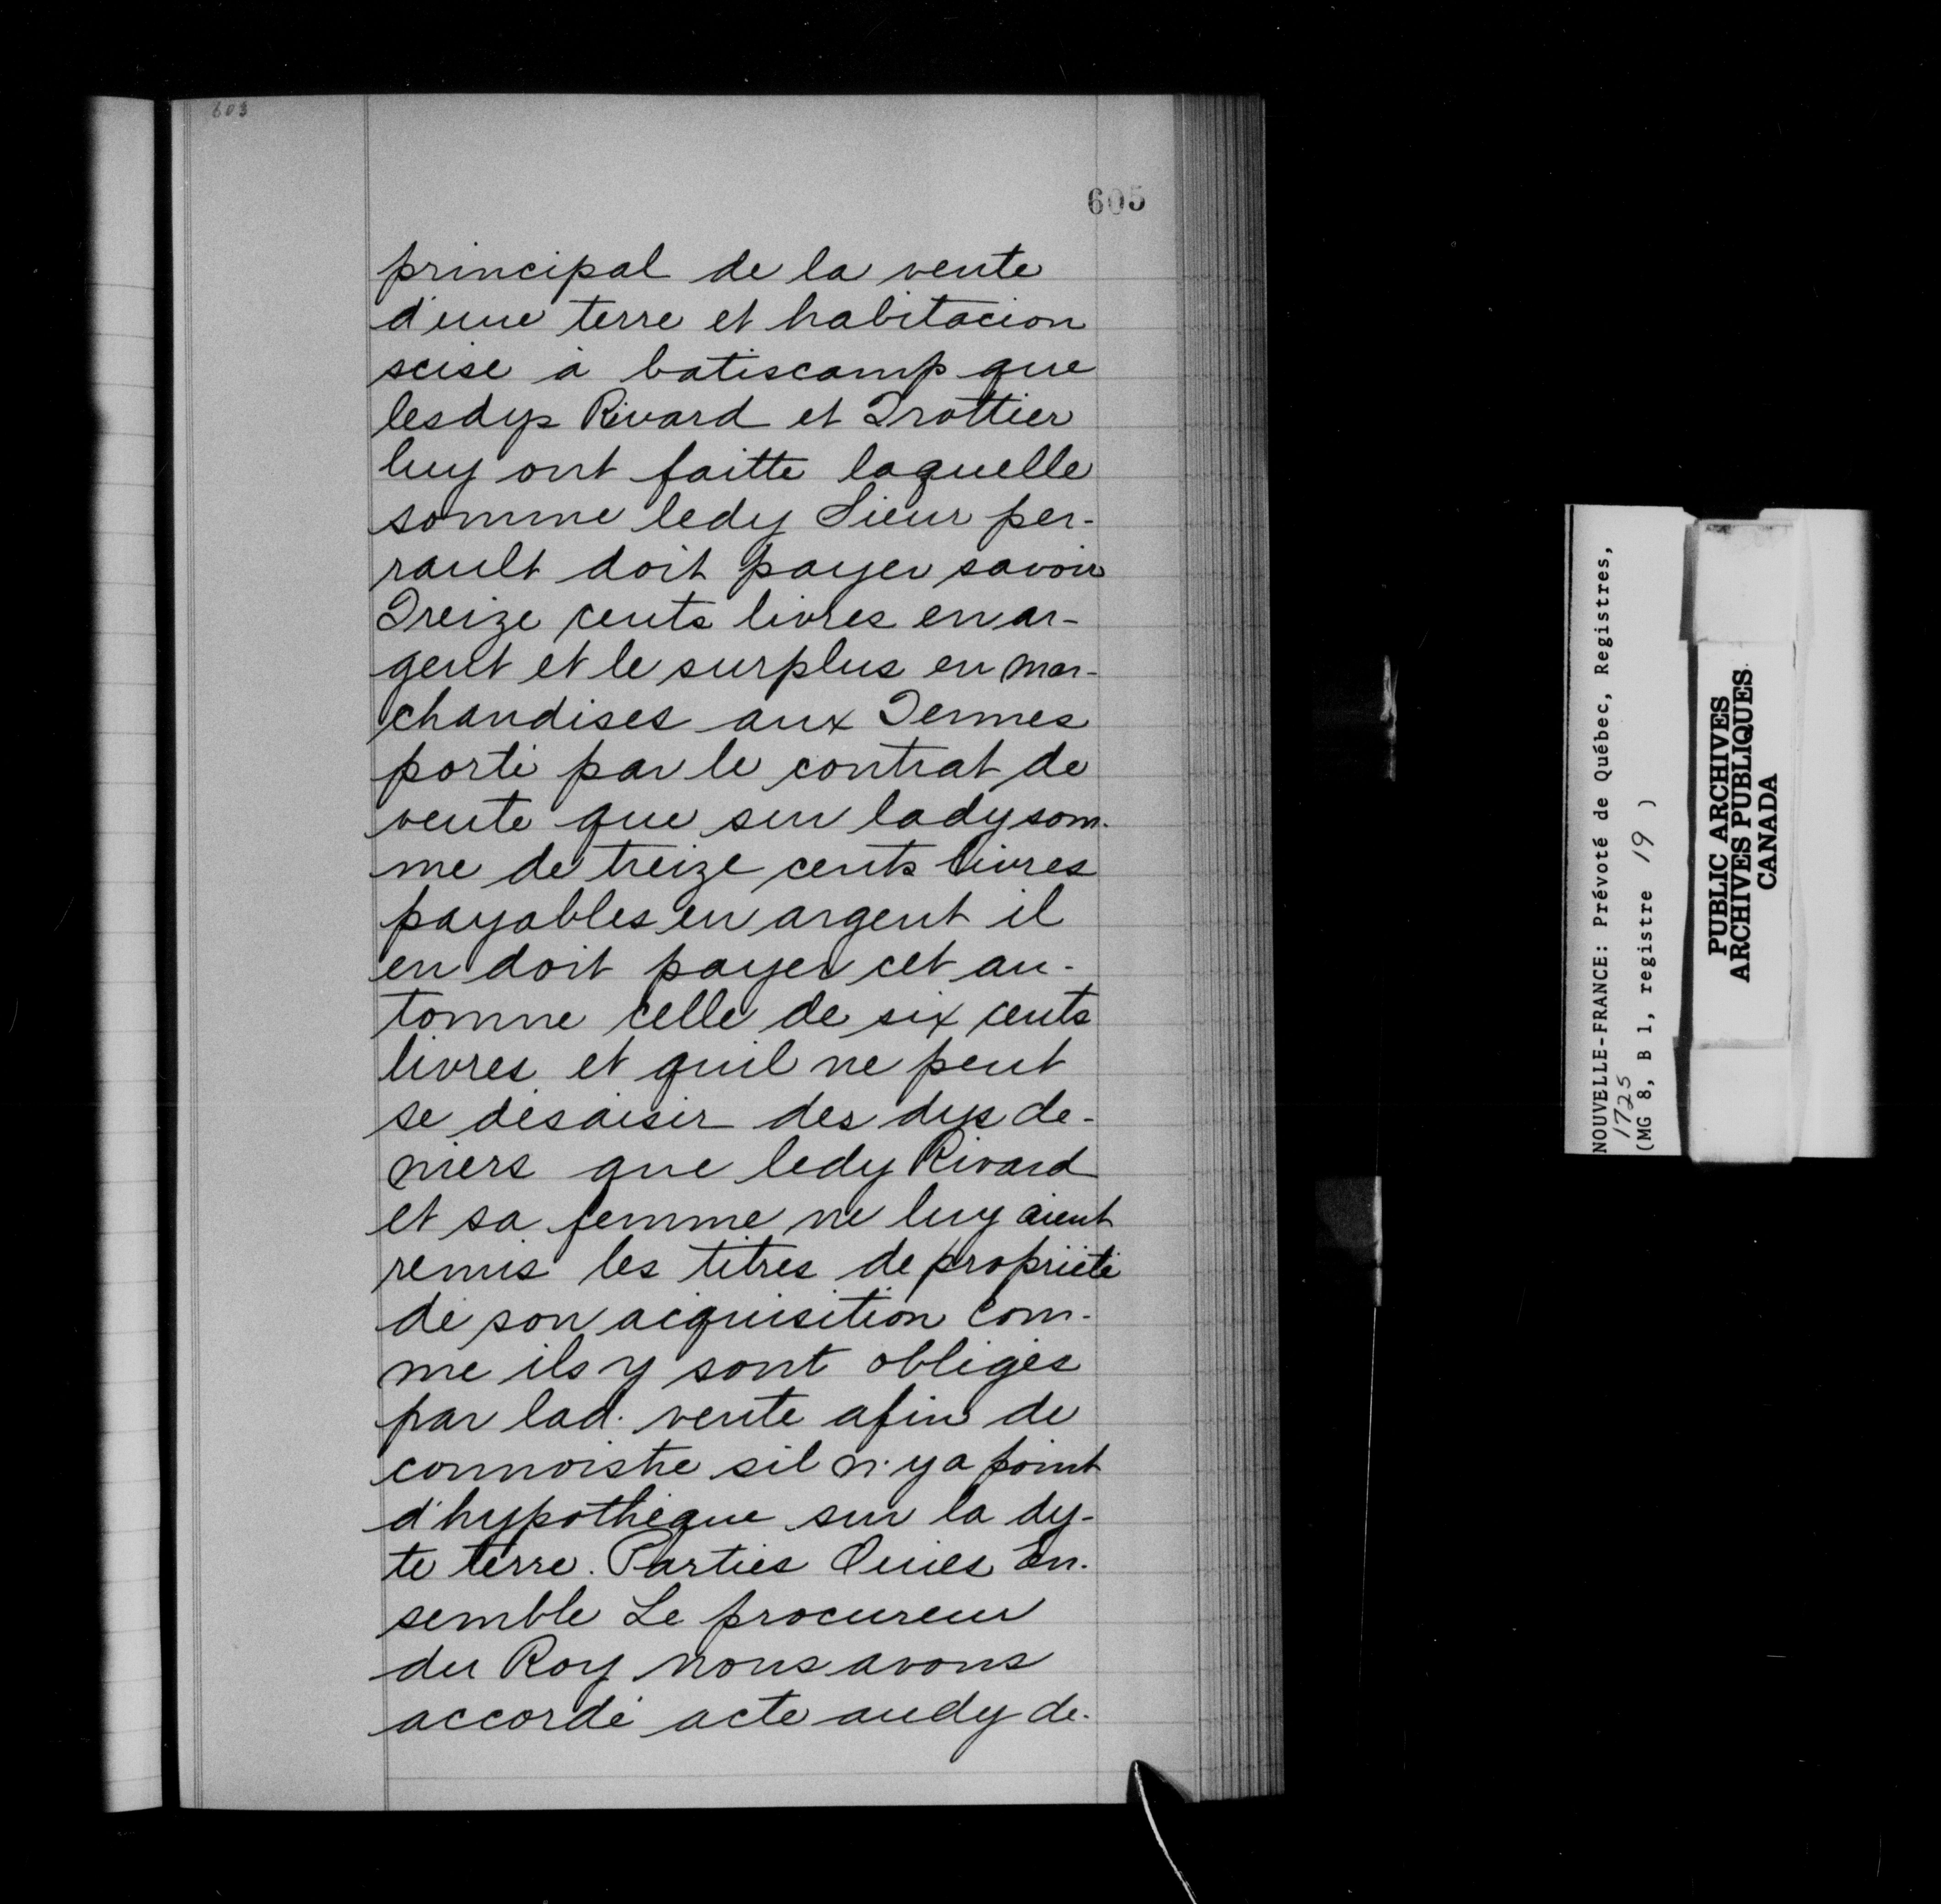 603
605
principal de la vente
d'une terre et habitacion
scise à batiscamp que
lesdys Rivard et Trottier
luy ont faitte laquelle
somme ledy Sieur per-
rault doit payer savoir
Treize cents livres en ar-
gent et le surplus en mar-
chandises aux Termes
porté par le contrat de
vente que sur ladysom-
me de treize cents livres
payables en argent il
en doit payer cet au-
tomne celle de six cents
livres et quil ne peut
se désaisir des dys de-
niers que ledy Rivard
et sa femme ne luy aient
remis les titres de propriété
de son acquisition com-
me ils y sont obligés
par lad. vente afin de
connoistre sil n'y a point
d'hypothèque sur la dy-
te terre. Parties Ouies En-
semble Le procureur
du Roy nous avons
accordé acte audy de-
NOUVELLE-FRANCE: Prévoté de Québec, Registres,
1725
(MG 8, B 1, registre 19 )
PUBLIC ARCHIVES
ARCHIVES PUBLIQUES
CANADA